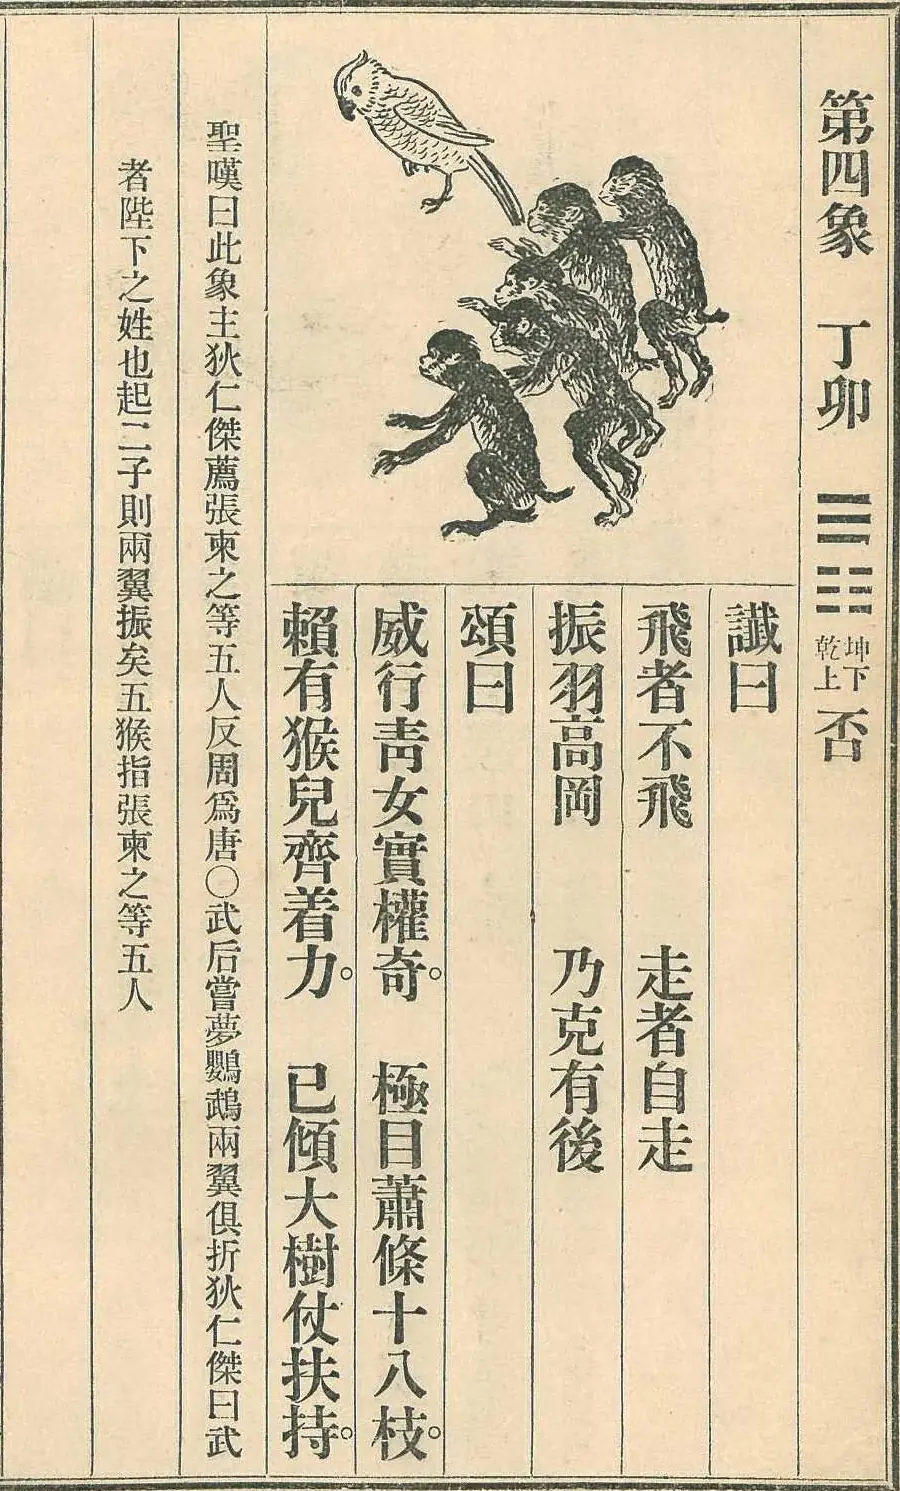 第四象 丁卯 坤下乾上 否
讖曰
飛者不飛 走者自走
振羽高岡 乃克有後
頌曰
威行靑女實權奇。 極目蕭條十八枝。
賴有猴兒齊着力。 已傾大樹仗扶持。
聖嘆曰此象主狄仁傑薦張柬之等五人反周爲唐○武后嘗夢鸚鵡兩翼俱折狄仁傑曰武
者陛下之姓也起二子則兩翼振矣五猴指張柬之等五人